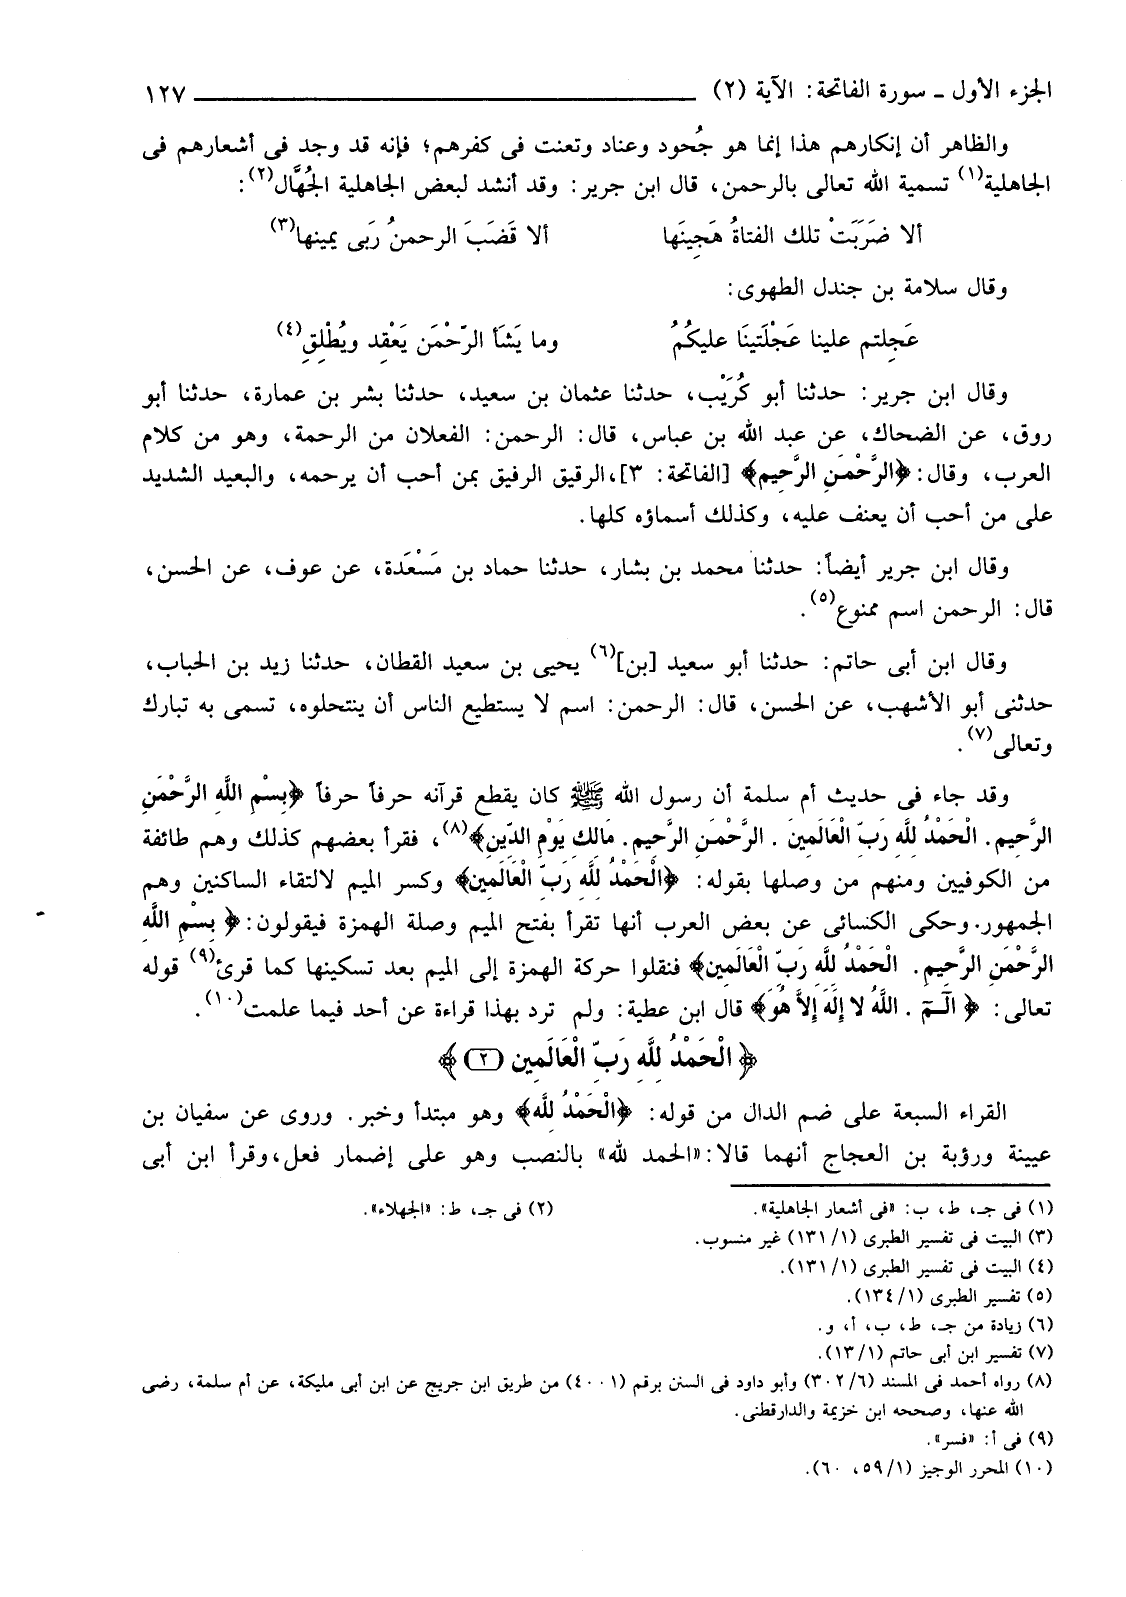 الجزء الأول ـ سورة الفاتحة: الآية (٢) ١٢٧
والظاهر أن إنكارهم هذا إنما هو جُحود وعناد وتعنت فى كفرهم؛ فإنه قد وجد فى أشعارهم فى
الجاهلية(١) تسمية الله تعالى بالرحمن، قال ابن جرير: وقد أنشد لبعض الجاهلية الجُهَّال(٢):
ألا ضَرَبَتْ تلك الفتاةُ هَجِينَها ألا قَضَبَ الرحمنُ رَبى يمينها(٣)
وقال سلامة بن جندل الطهوى:
عَجِلتم علينا عَجْلَتينَا عليكُمُ وما يَشَأ الرّحْمَن يَعْقِد ويُطْلِقِ(٤)
وقال ابن جرير: حدثنا أبو كُرَيْب، حدثنا عثمان بن سعيد، حدثنا بشر بن عمارة، حدثنا أبو
روق، عن الضحاك، عن عبد الله بن عباس، قال: الرحمن: الفعلان من الرحمة، وهو من كلام
العرب، وقال: ﴿الرَّحْمَنِ الرَّحِيم﴾ [الفاتحة: ٣]،الرقيق الرفيق بمن أحب أن يرحمه، والبعيد الشديد
على من أحب أن يعنف عليه، وكذلك أسماؤه كلها.
وقال ابن جرير أيضاً: حدثنا محمد بن بشار، حدثنا حماد بن مَسْعَدة، عن عوف، عن الحسن،
قال: الرحمن اسم ممنوع(٥).
وقال ابن أبى حاتم: حدثنا أبو سعيد [بن](٦) يحيى بن سعيد القطان، حدثنا زيد بن الحباب،
حدثنى أبو الأشهب، عن الحسن، قال: الرحمن: اسم لا يستطيع الناس أن ينتحلوه، تسمى به تبارك
وتعالى(٧).
وقد جاء فى حديث أم سلمة أن رسول الله ﷺ كان يقطع قرآنه حرفاً حرفاً ﴿بِسْمِ اللَّهِ الرَّحْمَنِ
الرَّحِيم. الْحَمْدُ لِلَّهِ رَبِّ الْعَالَمِينَ . الرَّحْمَنِ الرَّحِيم. مَالِكِ يَوْمِ الدِّينِ﴾(٨)، فقرأ بعضهم كذلك وهم طائفة
من الكوفيين ومنهم من وصلها بقوله: ﴿الْحَمْدُ لِلَّهِ رَبِّ الْعَالَمِين﴾ وكسر الميم لالتقاء الساكنين وهم
الجمهور.وحكى الكسائى عن بعض العرب أنها تقرأ بفتح الميم وصلة الهمزة فيقولون: ﴿ بِسْمِ اللَّهِ
الرَّحْمَنِ الرَّحِيمِ. الْحَمْدُ لِلَّهِ رَبِّ الْعَالَمِين﴾ فنقلوا حركة الهمزة إلى الميم بعد تسكينها كما قرئ(٩) قوله
تعالى: ﴿ الٓـمٓ . اللَّهُ لا إِلَهَ إِلاَّ هُوَ﴾ قال ابن عطية: ولم ترد بهذا قراءة عن أحد فيما علمت(١٠).
﴿ الْحَمْدُ لِلَّهِ رَبِّ الْعَالَمِين (٢) ﴾
القراء السبعة على ضم الدال من قوله: ﴿الْحَمْدُ لِلَّه﴾ وهو مبتدأ وخبر. وروى عن سفيان بن
عيينة ورؤبة بن العجاج أنهما قالا:«الحمد لله» بالنصب وهو على إضمار فعل،وقرأ ابن أبى
(١) فى جـ، ط، ب: «فى أشعار الجاهلية». (٢) فى جـ، ط: «الجهلاء».
(٣) البيت فى تفسير الطبرى (١/ ١٣١) غير منسوب.
(٤) البيت فى تفسير الطبرى (١/ ١٣١).
(٥) تفسير الطبرى (١/ ١٣٤).
(٦) زيادة من جـ، ط، ب، أ، و.
(٧) تفسير ابن أبى حاتم (١/ ١٣).
(٨) رواه أحمد فى المسند (٦/ ٣٠٢) وأبو داود فى السنن برقم (٤٠٠١) من طريق ابن جريج عن ابن أبى مليكة، عن أم سلمة، رضى
الله عنها، وصححه ابن خزيمة والدارقطنى.
(٩) فى أ: «فسر».
(١٠) المحرر الوجيز (١/ ٥٩، ٦٠).